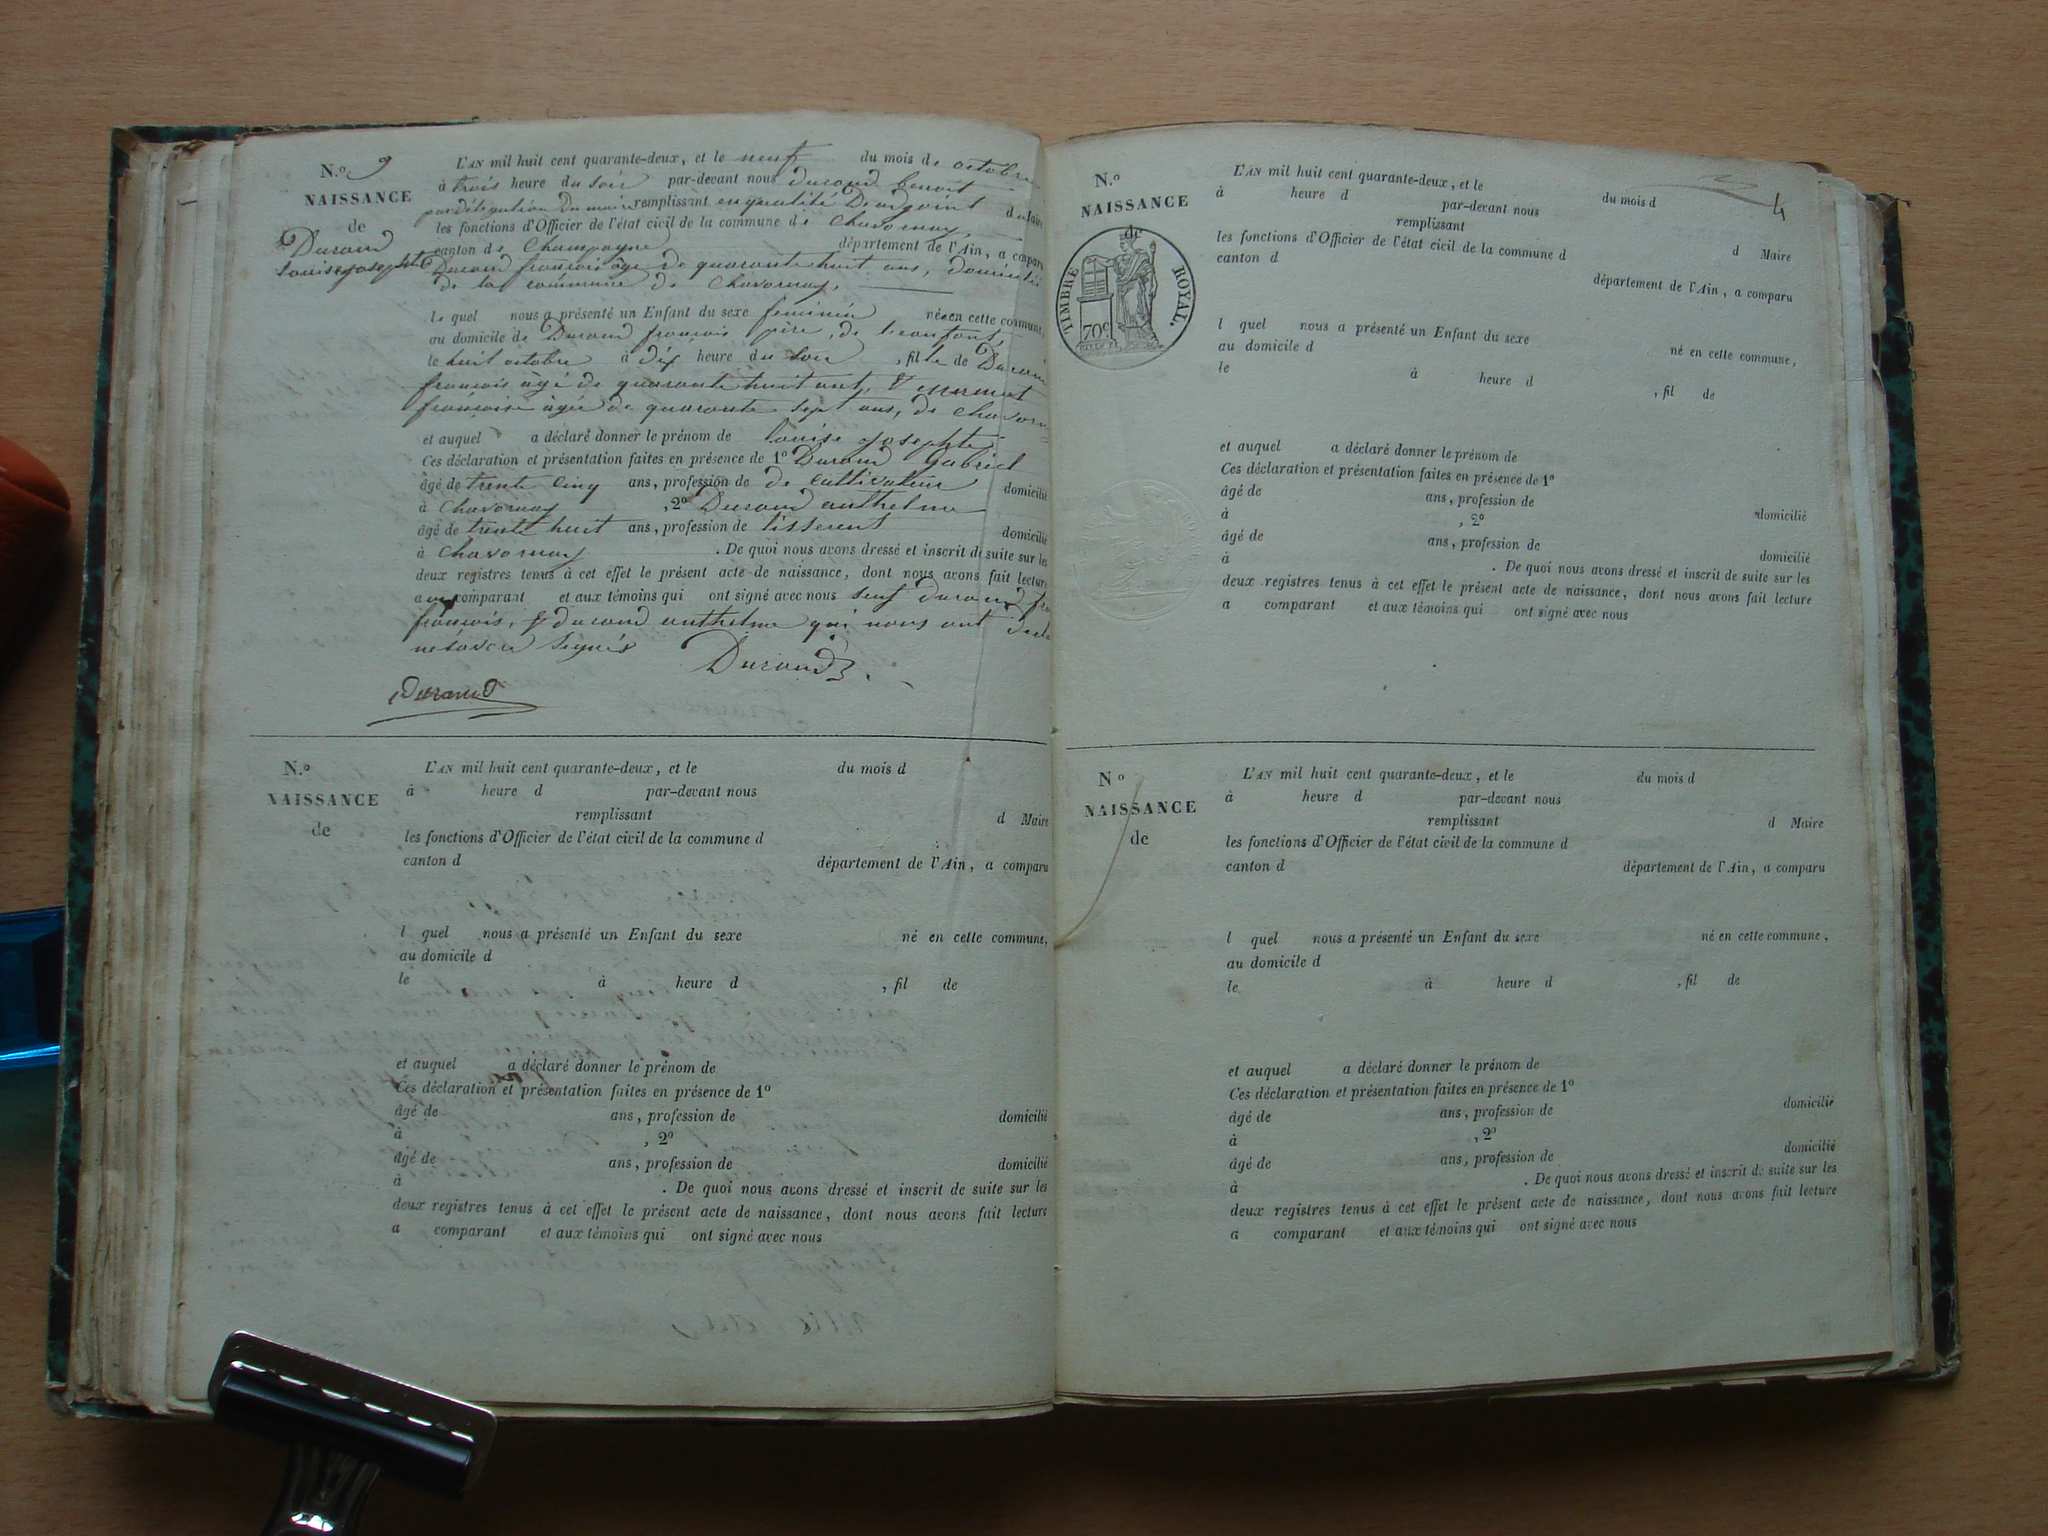 N.º 9
NAISSANCE
de
Durand
Louise josephte
L'AN mil huit cent quarante-deux, et le neuf du mois de octobre
à trois heure du soir par-devant nous durand benoit
par délégation du maire remplissant en qualité D'adjoint du Maire
les fonctions d'Officier de l'état civil de la commune de Chavornay,
canton de Champagne département de l'Ain, a comparu
Durand françois âgé de quarante huit ans, domicilié
de la commune de Chavornay,
le quel nous a présenté un Enfant du sexe feminin née en cette commune,
au domicile de Durand françois, père, de l'enfant,
le huit octobre à dix heure du soir , fille de Durand
françois âgé de quarante huit ans, &
françoise âgée de quarante sept ans, de chavorn
et auquel a déclaré donner le prénom de louise josephte
Ces déclaration et présentation faites en présence de 1º Durand gabriel
âgé de trente cinq ans, profession de de cultivateur domicilié
à Chavornay , 2º Durand anthelme
âgé de trente huit ans, profession de tisserent domicilié
à chavornay . De quoi nous avons dressé et inscrit de suite sur les
deux registres tenus à cet effet le présent acte de naissance, dont nous avons fait lecture
au comparant et aux témoins qui ont signé avec nous seuf durand fra
françois, & durand anthelme qui nous ont décla
ne savoir signés
Durand
Durand
N.º
NAISSANCE
de
L'AN mil huit cent quarante-deux, et le du mois d
à heure d par-devant nous
remplissant d Maire
les fonctions d'Officier de l'état civil de la commune d
canton d département de l'Ain, a comparu
l quel nous a présenté un Enfant du sexe né en cette commune,
au domicile d
le à heure d , fil de
et auquel a déclaré donner le prénom de
Ces déclaration et présentation faites en présence de 1º
âgé de ans, profession de domicilié
à , 2º
âgé de ans, profession de domicilié
à . De quoi nous avons dressé et inscrit de suite sur les
deux registres tenus à cet effet le présent acte de naissance, dont nous avons fait lecture
a comparant et aux témoins qui ont signé avec nous
4
N.º
NAISSANCE
de
TIMBRE ROYAL.
70c
L'AN mil huit cent quarante-deux, et le du mois d
à heure d par-devant nous
remplissant d Maire
les fonctions d'Officier de l'état civil de la commune d
canton d département de l'Ain, a comparu
l quel nous a présenté un Enfant du sexe né en cette commune,
au domicile d
le à heure d , fil de
et auquel a déclaré donner le prénom de
Ces déclaration et présentation faites en présence de 1º
âgé de ans, profession de domicilié
à , 2º
âgé de ans, profession de domicilié
à . De quoi nous avons dressé et inscrit de suite sur les
deux registres tenus à cet effet le présent acte de naissance, dont nous avons fait lecture
a comparant et aux témoins qui ont signé avec nous
N º
NAISSANCE
de
L'AN mil huit cent quarante-deux, et le du mois d
à heure d par-devant nous
remplissant d Maire
les fonctions d'Officier de l'état civil de la commune d
canton d département de l'Ain, a comparu
l quel nous a présenté un Enfant du sexe né en cette commune,
au domicile d
le à heure d , fil de
et auquel a déclaré donner le prénom de
Ces déclaration et présentation faites en présence de 1º
âgé de ans, profession de domicilié
à , 2º
âgé de ans, profession de domicilié
à . De quoi nous avons dressé et inscrit de suite sur les
deux registres tenus à cet effet le présent acte de naissance, dont nous avons fait lecture
a comparant et aux témoins qui ont signé avec nous